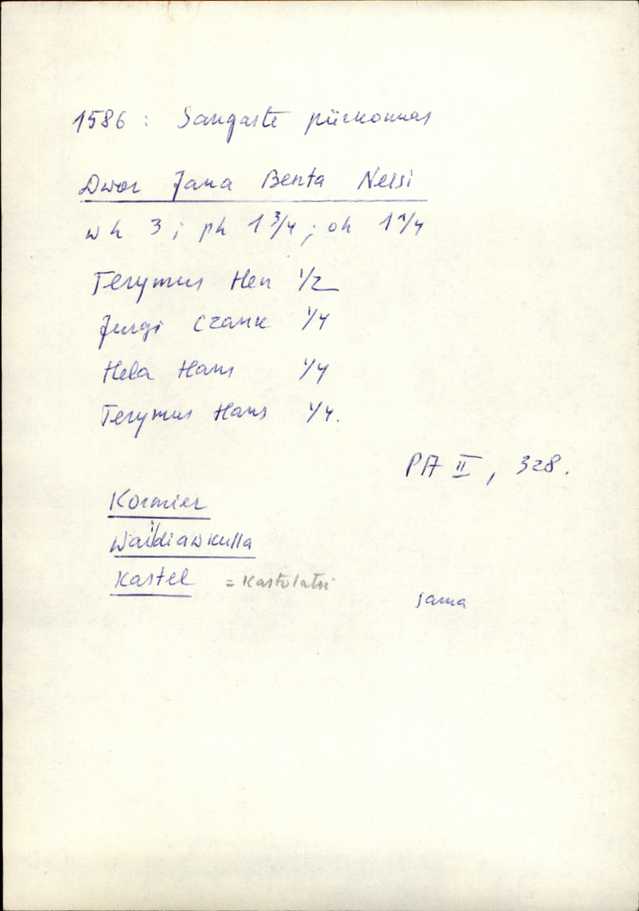 1586 : Sangaste piirkonnas
Dwor Jana Benta Nelsi
wh 3 ; ph 1 3/4 ; oh 1 1/4
Terymus Hen 1/2
Jurgi Czank 1/4
Hela Hans 1/4
Terymus Hans 1/4.
PA II, 328.
Kormier
Waidiawkulla
Kastel = Kastolatsi
sama